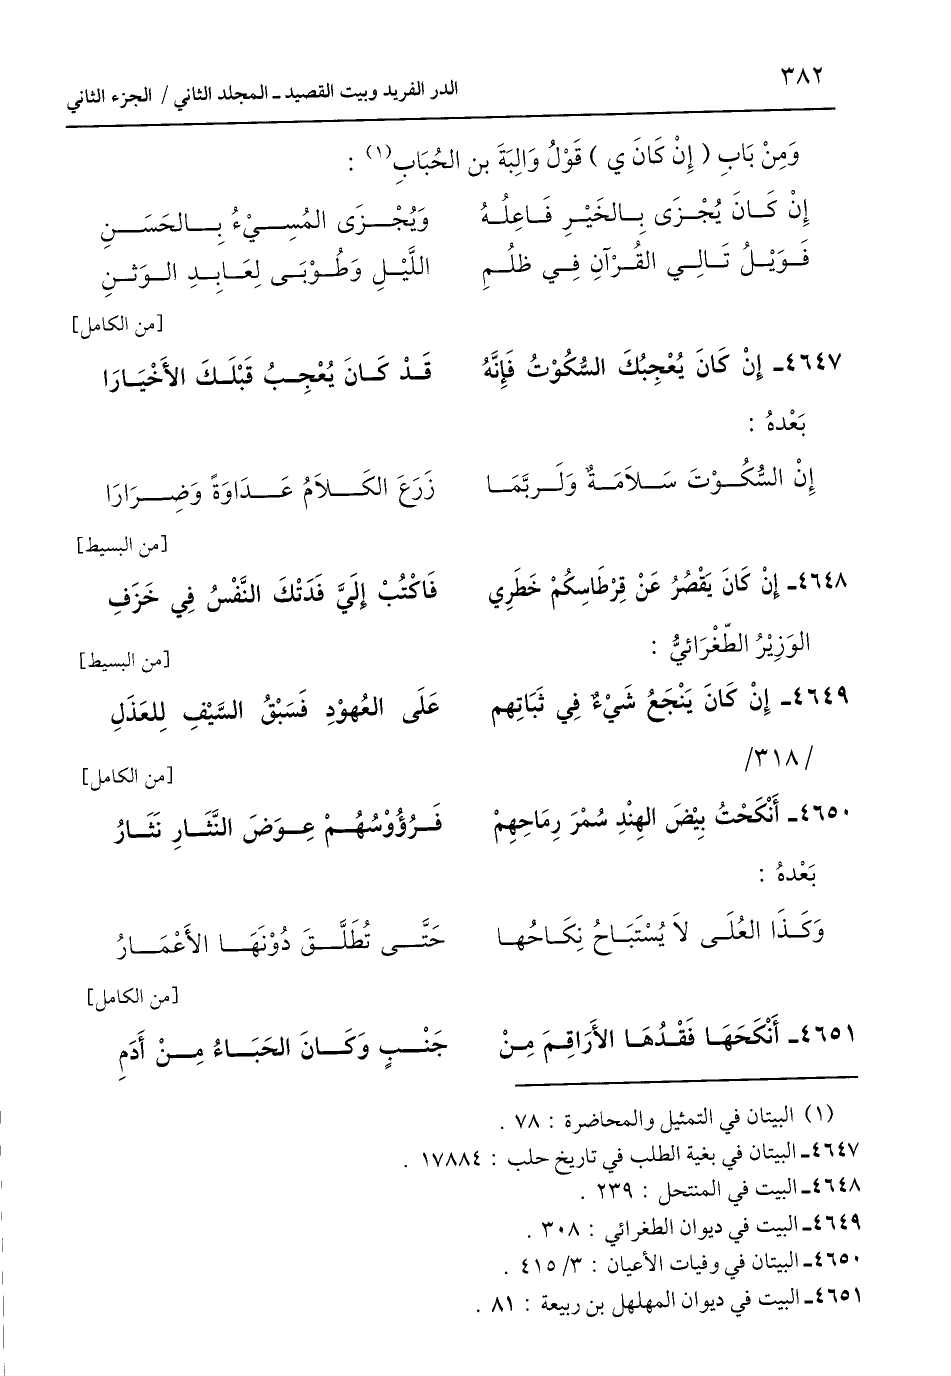 ٣٨٢
الدر الفريد وبيت القصيد ـ المجلد الثاني / الجزء الثاني
وَمِنْ بَابِ ( إِنْ كَانَ ي ) قَوْلُ وَالِبَةَ بن الحُبَابِ(١) :
إِنْ كَـانَ يُجْزَى بِـالخَيْرِ فَـاعِلُهُ وَيُجْـزَى المُسِـيْءُ بِـالحَسَـنِ
فَـوَيْـلُ تَـالِـي القُـرْآنِ فِـي ظلُـمِ اللَّيْلِ وَطُـوْبَـى لِعَـابِـدِ الـوَثَـنِ
[من الكامل]
٤٦٤٧ـ إِنْ كَانَ يُعْجِبُكَ السُّكُوْتُ فَإِنَّهُ قَدْ كَـانَ يُعْجِـبُ قَبْلَـكَ الأَخْيَـارَا
بَعْدهُ :
إِنْ السُّكُـوْتَ سَـلاَمَـةٌ وَلَـربَّمَـا زَرَعَ الكَـلاَمُ عَـدَاوَةً وَضِـرَارَا
[من البسيط]
٤٦٤٨ـ إِنْ كَانَ يَقْصُرُ عَنْ قِرْطَاسِكُمْ خَطَرِي فَاكْتُبْ إِلَيَّ فَدَتْكَ النَّفْسُ فِي خَزَفِ
الوَزِيْرُ الطّغْرَائيُّ :
[من البسيط]
٤٦٤٩ـ إِنْ كَانَ يَنْجَعُ شَيْءٌ فِي ثَبَاتِهِم عَلَى العُهُوْدِ فَسَبْقُ السَّيْفِ لِلعَذَلِ
/٣١٨/
[من الكامل]
٤٦٥٠ـ أَنْكَحْتُ بِيْضَ الهِنْدِ سُمْرَ رِمَاحِهِمْ فَـرُؤُوْسُهُـمْ عِـوَضَ النَّثَـارِ نَثَـارُ
بَعْدهُ :
وَكَـذَا العُلَـى لاَ يُسْتَبَـاحُ نِكَـاحُهـا حَتَّـى تُطَلَّـقَ دُوْنَهَـا الأَعْمَـارُ
[من الكامل]
٤٦٥١ـ أَنْكَحَهَـا فَقْدُهَـا الأَرَاقِـمَ مِـنْ جَنْـبٍ وَكَـانَ الحَبَـاءُ مِـنْ أَدَمِ
(١) البيتان في التمثيل والمحاضرة : ٧٨ .
٤٦٤٧ـ البيتان في بغية الطلب في تاريخ حلب : ١٧٨٨٤ .
٤٦٤٨ـ البيت في المنتحل : ٢٣٩ .
٤٦٤٩ـ البيت في ديوان الطغرائي : ٣٠٨ .
٤٦٥٠ـ البيتان في وفيات الأعيان : ٣/ ٤١٥ .
٤٦٥١ـ البيت في ديوان المهلهل بن ربيعة : ٨١ .